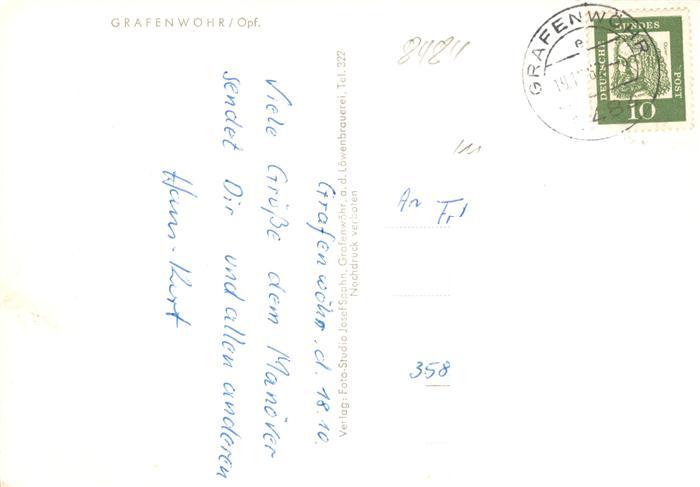 GRAFENWÖHR/Opf.
Grafenwöhr, d. 18.10.
Viele Grüße dem Manöver
sendet Dir und allen anderen
Hans-Kurt
Verlag: Foto-Studio Josef Spahn, Grafenwöhr, a.d. Löwenbrauerei, Tel. 322
Nachdruck verboten
8484
GRAFENWÖHR
e
DEUTSCHE
BUNDES
POST
10
An Fr
358